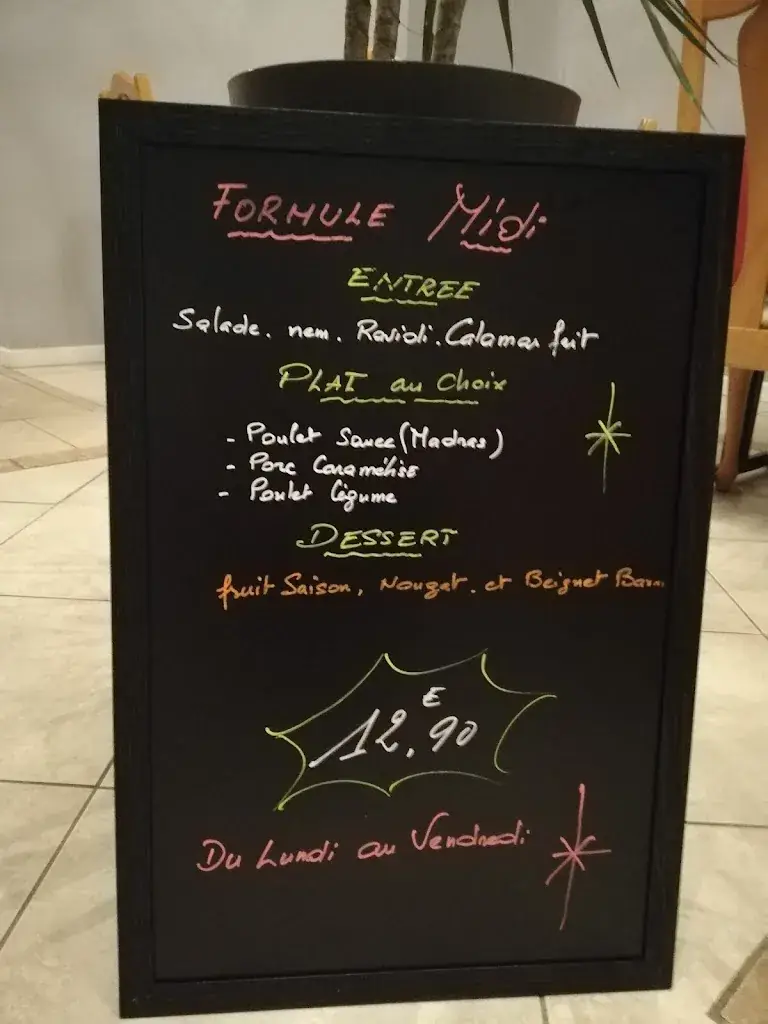 FORMULE Midi
ENTREE
Salade. nem. Ravioli. Calamar frit
PLAT au choix
- Poulet Sauce (Madras)
- Porc Caramélisé
- Poulet légume
DESSERT
fruit Saison, Nougat. et Beignet
E
12,90
Du Lundi au Vendredi